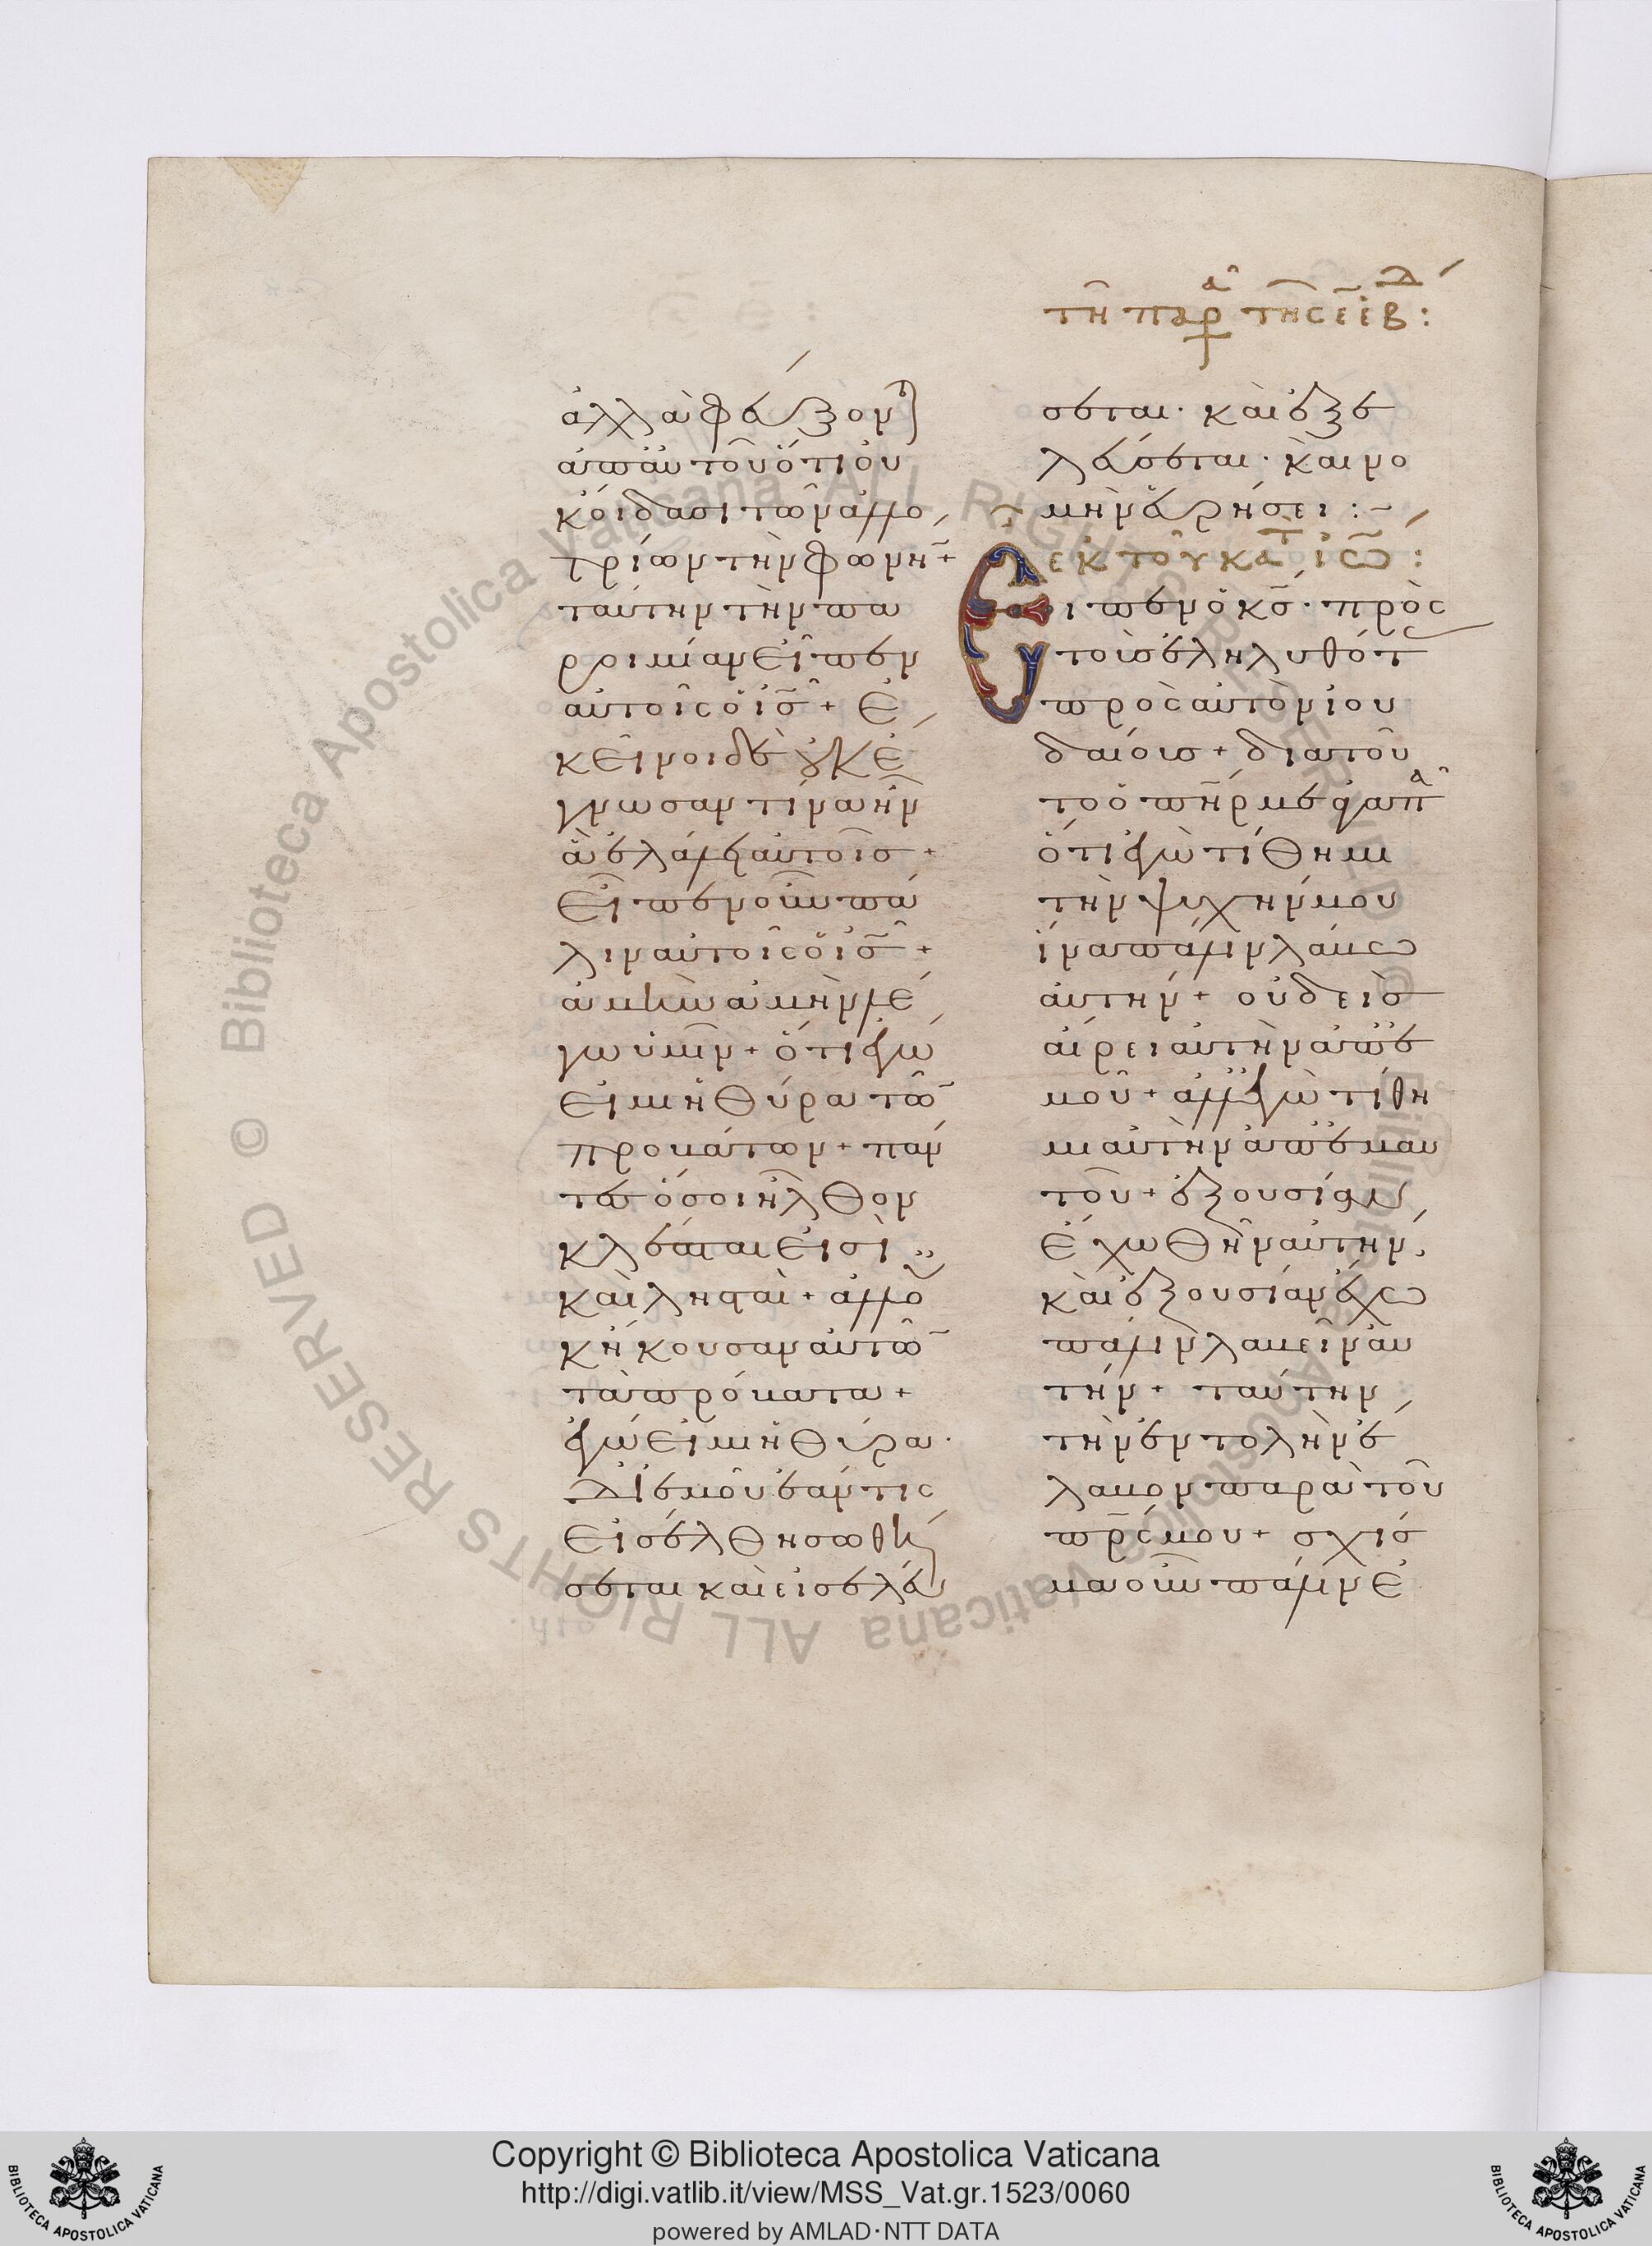 τῆ παρα τῆς ε ἑβδ :
ἀλλὰ φεύξοντ
ἀπ αὐτοῦ ὅτι οὐ
κ οἴδασι τῶν ἀλλο
τρίων τὴν φωνὴ +
ταύτην τὴν πα
ροιμίαν εἶπεν
αὐτοῖς ὁ ις + ἐ
κεῖνοι δὲ οὐκ ἔ
γνωσαν τίνα ἦν
ἃ ἐλάλει αὐτοῖσ +
εἶπεν οὖν πά
λιν αὐτοῖς ὁ ις +
ἀμὴν ἀμὴν λέ
γω ὑμῖν + ὅτι ἐγώ
εἰμι ἡ θύρα τῶ
προβάτων + πάν
τες ὅσοι ἦλθον
κλέπται εἰσὶ
καὶ λησταὶ + ἀλλ ο
κ ἤκουσαν αὐτῶ
τὰ πρόβατα +
ἐγώ εἰμι ἡ θύρα ·
Δι ἐμοῦ ἐάν τις
εἰσέλθη σωθή
σεται καὶ εἰσελεύ
σεται · καὶ ἐξε
λεύσεται · καὶ νο
μὴν εὑρήσει : ~
εκ τοῦ κατ ἰω :
Εἶπεν ὁ κς · πρὸς
τοὺσ ἐληλυθότ
πρὸς αὐτὸν ἰου
δαίουσ + διὰ τοῦ
το ὁ πηρ με ἀγαπᾶ
ὅτι ἐγὼ τίθημι
τὴν ψυχήν μου
ἵνα πάλιν λάβω
αὐτήν + οὐδεὶσ
αἴρει αὐτὴν ἀπ ἐ
μοῦ + ἀλλ ἐγὼ τίθη
μι αὐτὴν ἀπ ἐμαυ
τοῦ + ἐξουσίαν
ἔχω θεῖναι αὐτήν ,
καὶ ἐξουσίαν ἔχω
πάλιν λαβεῖν αὐ
τήν + ταύτην
τὴν ἐντολὴν ἔ
λαβον παρὰ τοῦ
πρς μου + σχίσ
μα οὖν πάλιν ἐ
Copyright © Biblioteca Apostolica Vaticana
http://digi.vatlib.it/view/MSS_Vat.gr.1523/0060
powered by AMLAD·NTT DATA